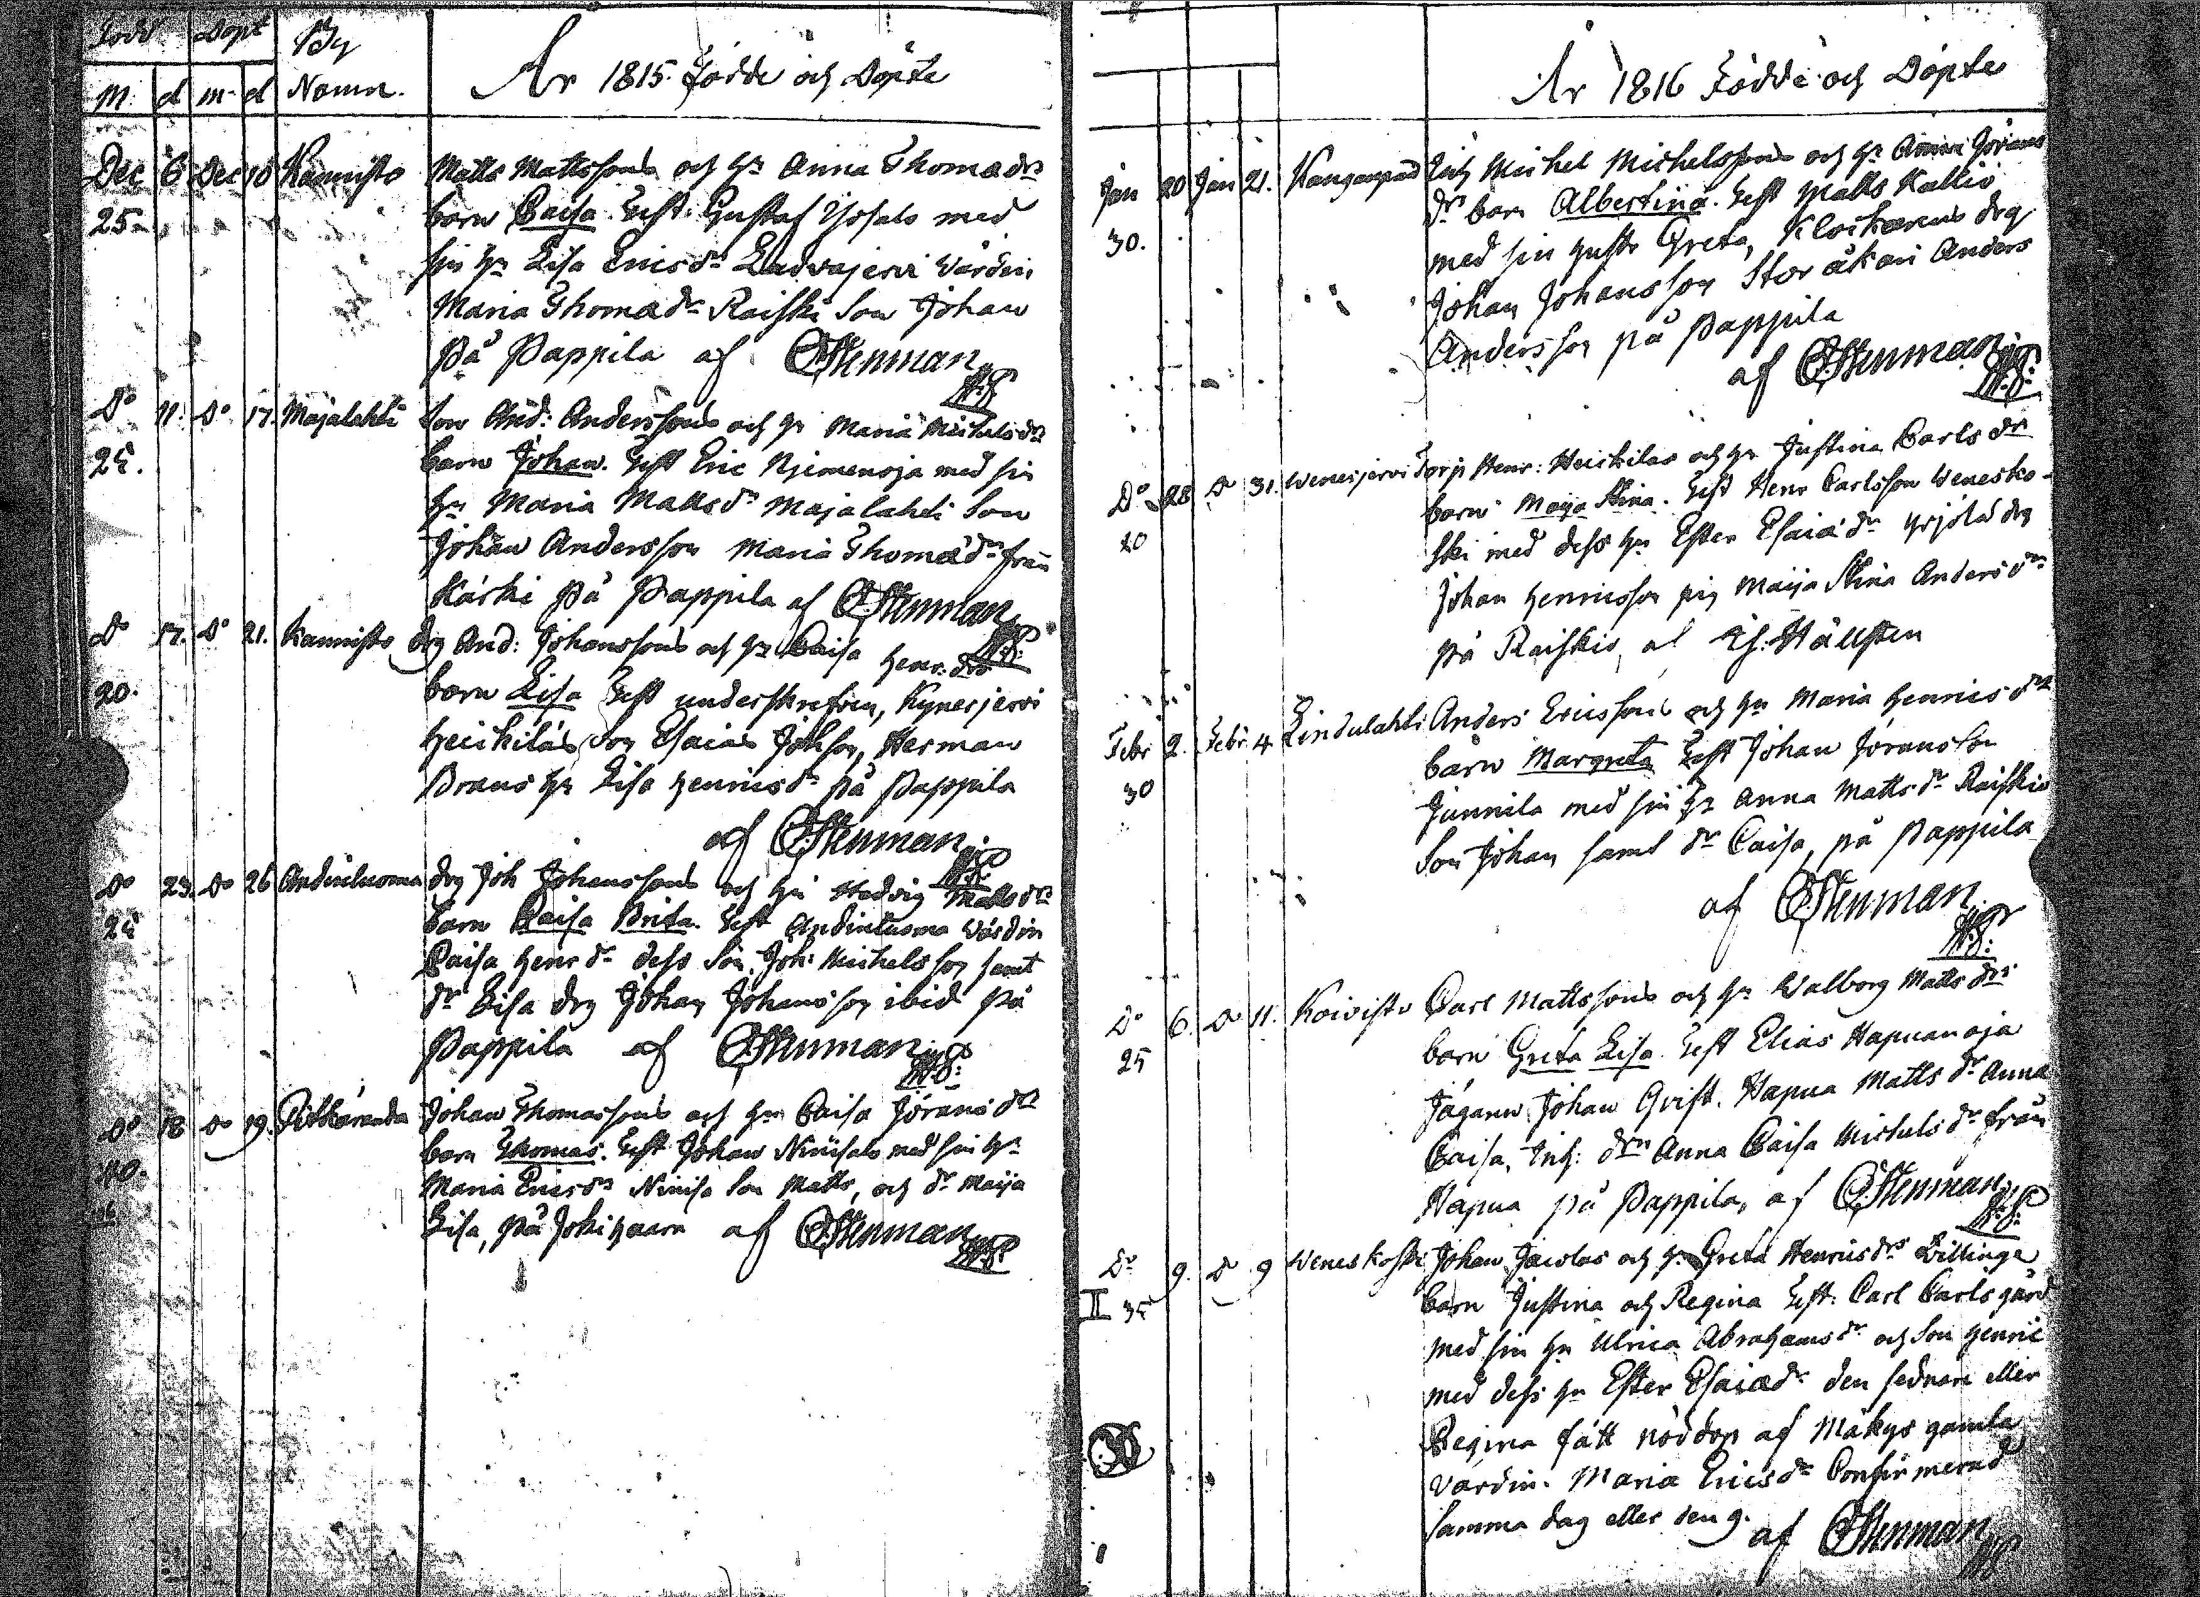 Född Döpt By
M. d m. d Namn.
År 1815. Födde och Döpte
Dec 6 Dec 10 Kannisto Matts Mattssons och h: Anna Thomædr
25 barn Caisa. Test: Gustaf med
sin h: Lisa Ericsdr värdin
Maria Thomædr Raiski Son Johan
på Pappila af CStenman
Do 11. Do 17. Majalahti Son And: Anderssons och h: Maria Michelsdr
25. barn Johan. Test Eric Njemensja med sin
h: Maria Mattsdr Majalahti Son
Johan Andersson Maria Thomædr från
Kärki på Pappila af CStenman
Do 17. Do 21. Kannisto drg And: Johanssons och h: Caisa Henr: dr
20. barn Lisa Test underskrefven, Kynesjervi
Heickiläs Son Esaias Johsson, Herman
Brans h: Lisa Henricsdr på Pappila
af CStenman.
Do 23. Do 26 Andinluoma drg Joh Johanssons och h: Hedvig Mattsdr
25 barn Caisa Brita. Test Andinluoma Värdin
Caisa Henrdr dess Son, Joh: Michelsson samt
dr Lisa drg Johan Johansson ibid på
Pappila af CStenman
Do 18 Do 19. Pitkäranda Johan Thomassons och h: Caisa Jöransdr
40. barn Thomas. Test Johan Niniisalo med sin h:
Maria Ericsdr Son Matts, och dr Maija
Lisa, på Jokihaara af CStenman
År 1816 Födde och Döpte
Jan 20 Jan 21. Kanganpää Inh Michel Michelssons och h: Anna Jörans
30. dr barn Albertina. Test Matts Kallio
med sin hustr Greta, Klockarens drg
Johan Johansson Anders
Andersson på Pappila
af CStenman
Do 28 Do 31. Wenesjervi Torp Henr: Heickilas och h: Justina Carlsdr
20 barn Maja Stina. Test Henr Carlsson Wenesko-
ski med dess h: Ester Esaiædr Yrjölä drg
Johan Henricsson pig Maija Stina Andersdr
på Raiskio, af Hällsten
Febr 2. Febr. 4 Lindulahti Anders Ericssons och h: Maria Henricsdr
30 barn Margreta Test Johan Jöransson
Junnila med sin h: Anna Mattsdr Raiskio
Son Johan samt dr Caisa, på Pappila
af CStenman
Do 6. Do 11. Koivisto Carl Mattssons och h: Walborg Mattsdr
25 barn Greta Lisa. Test Elias Hapuanoja
Jägarn Johan Grift. Hapua Mattsdr Anna
Caisa, Inh: drn Anna Caisa Michelsdr från
Hapua på Pappila, af CStenman
Do 9. Do 9 Weneskoski Johan Jacolas och h: Greta Henricsdrs Tvillinge
II 35 barn Justina och Regina Test: Carl Carlsgård
med sin h: Ulrica Abrahamsdr och Son Henric
med dess h: Ester Esaiædr den sednare eller
Regina fått nöddop af Mäkys gamla
Värdin. Maria Ericsdr Confirmerad
samma dag eller den 9. af CStenman